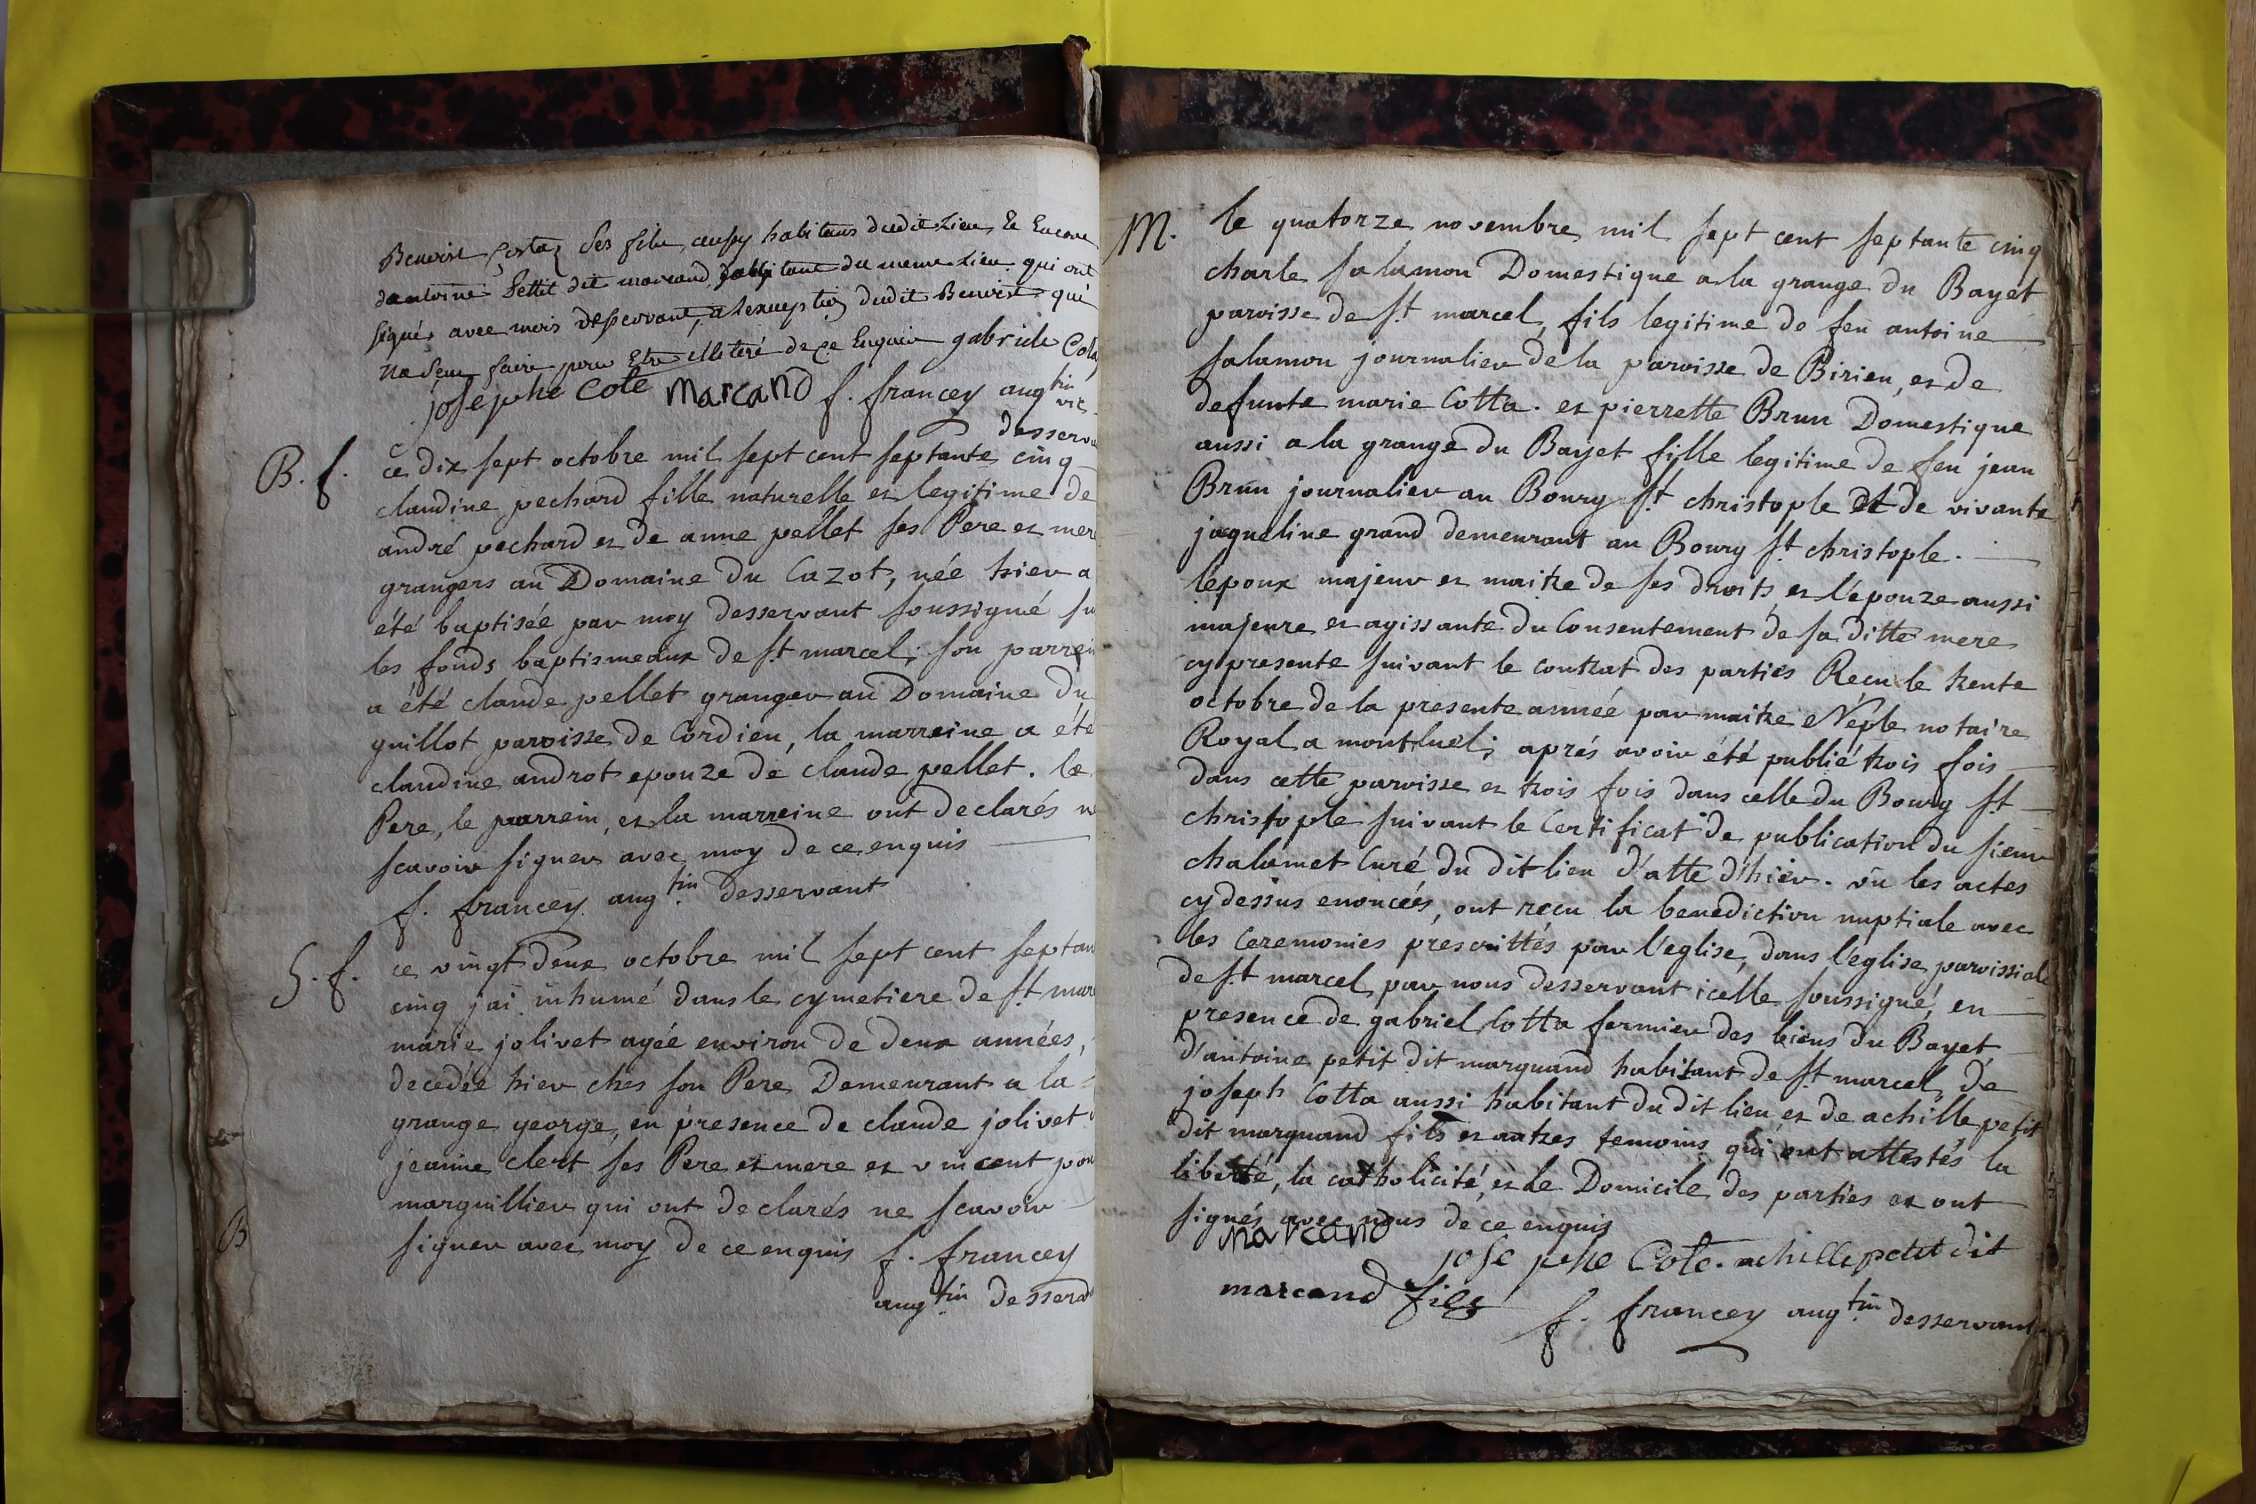 Benoist Costaz ses fils aussy habitans dudit Lieu, Et Encore
dantoine Pettit dit marcand habitant du meme Lieu qui ont
signés avec mois desservant, a lexception dudit Benoist qui
na seu faire pour Etre illeteré de ce Enquis gabriele Cola
josephe cole marcand f. francey aug.tin vic.
desserv
B. f. ce dix sept octobre mil sept cent septante cinq
claudine pechard fille naturelle et legitime de
andré pechard et de anne pellet ses Pere et mer
grangers au Domaine du Cazot, née hier a
été baptisée par moy desservant soussigné su
les fonds baptismeaux de st marcel; son parrein
a été claude pellet granger au Domaine du
guillot paroisse de Cordieu, la marreine a été
claudine androt epouze de claude pellet. le
Pere, le parrein, et la marreine ont declarés n
scavoir signer avec moy de ce enquis
f. francey aug.tin desservant
S. f. ce vingt deux octobre mil sept cent septan
cinq j'ai inhumé dans le cymetiere de st marc
marie jolivet agée environ de deux années,
decedée hier ches son Pere Demeurant a la
grange george, en presence de claude jolivet
jeanne clert ses Pere et mere et vincent pon
marguillier qui ont declarés ne scavoir
signer avec moy de ce enquis f. francey
aug.tin desserv
B
M. le quatorze novembre mil sept cent septante cinq
charle salamon Domestique a la grange du Bayet
paroisse de st marcel, fils legitime de feu antoine
salamon journalier de la paroisse de Birieu, et de
defunte marie Cotta. et pierrette Brun Domestique
aussi a la grange du Bayet fille legitime de feu jean
Brun journalier au Bourg st christople et de vivante
jaqueline grand demeurant au Bourg st christople.
l'epoux majeur et maitre de ses droits, et l'epouze aussi
majeure et agissante du Consentement de sa ditte mere
cy presente suivant le contrat des parties Recu le trente
octobre de la presente année par maitre Néple notaire
Royal a montluel; aprés avoir été publié trois fois
dans cette paroisse et trois fois dans celle du Bourg st
christople suivant le Certificat de publication du sieur
chalamet Curé du dit lieu d'atte d'hier. vu les actes
cy dessus enoncées, ont recu la benediction nuptiale avec
les Ceremonies prescrittés par l'eglise, dans l'eglise paroissiale
de st marcel, par nous desservant icelle soussigné, en
presence de gabriel Cotta fermier des biens du Bayet
d'antoine petit dit marquand habitant de st marcel, de
joseph Cotta aussi habitant du dit lieu et de achille petit
dit marquand fils et autres temoins qui ont attestés la
liberté, la catholicité, et le Domicile des parties et ont
signés avec nous de ce enquis
marcand josephe Cote. achille petit dit
marcand fils f. francey aug.tin desservant